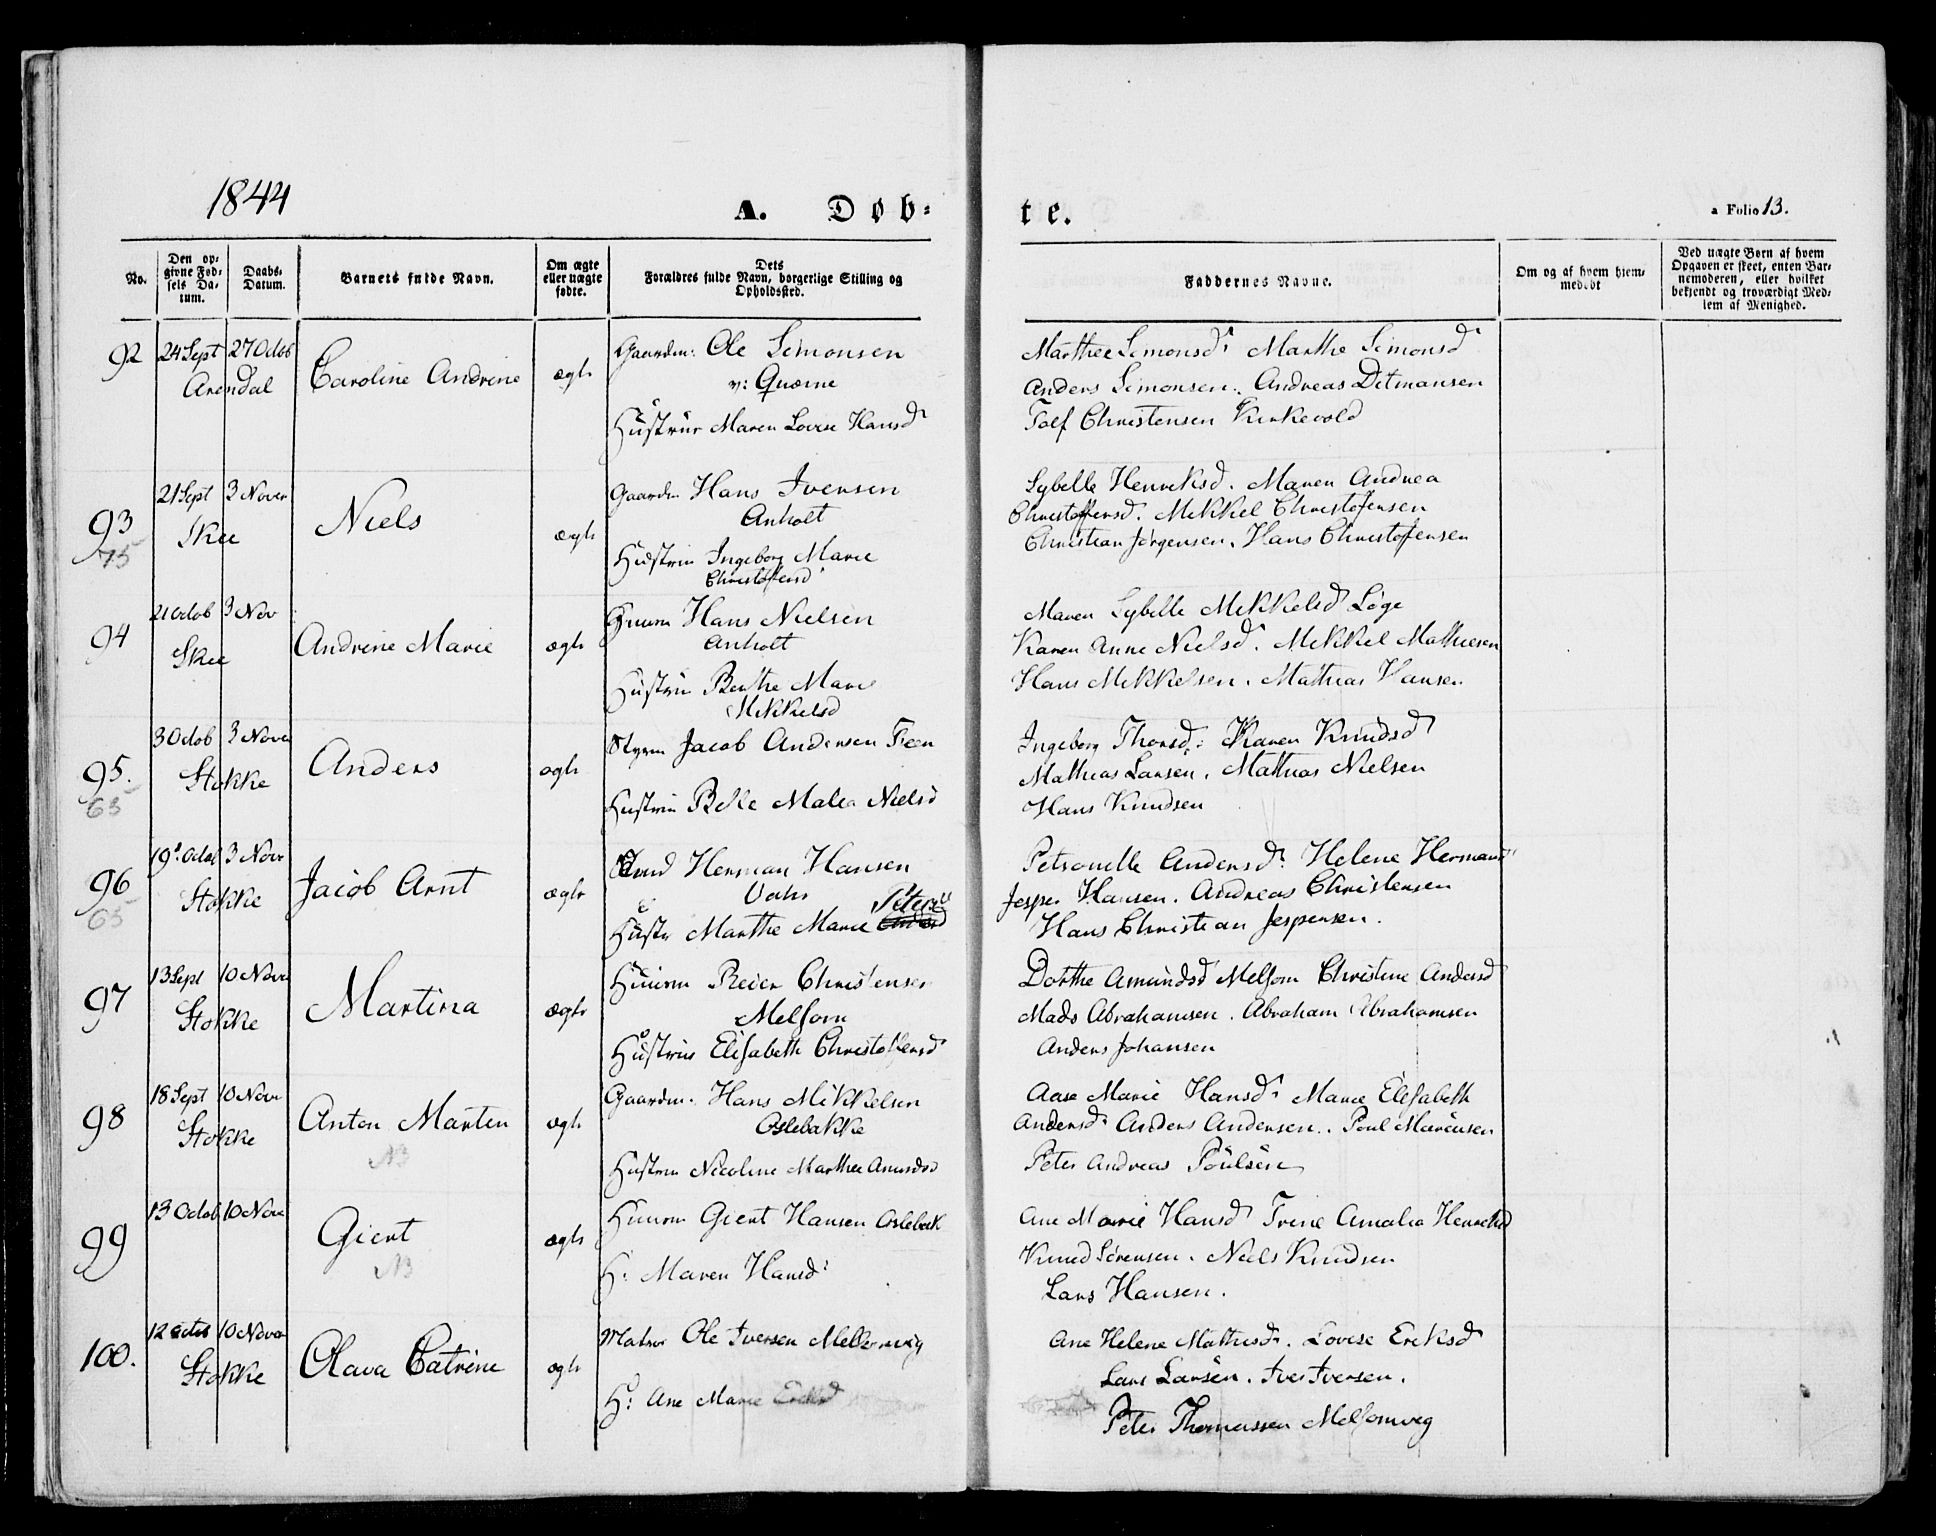 1844
A. Døb-
te.
a Folio 13.
No.
Den op-
givne Fød-
sels Da-
tum.
Daabs-
Datum.
Barnets fulde Navn.
Om ægte
eller uægte
fødte.
Dets
Forældres fulde Navn, borgerlige Stilling og
Opholdssted.
Faddernes Navne.
Om og af hvem hjem-
medøbt
Ved uægte Børn af hvem
Opgaven er skeet, enten Bar-
nemoderen, eller hvilket
bekjendt og troværdigt Med-
lem af Menighed.
92 24 Sept 27 Octob Caroline Andrine ægte Gaardm: Ole Simonsen
Arendal
v: Qværne
Hustrue Maren Lovise Hansd
Marthee Simonsd. Marthe Simonsd
Anders Simonsen. Andreas Ditmansen
Tolf Christensen Kirkevold
93 21 Sept 3 Nover Niels ægte Gaardm Hans Iversen
75 Skee
Anholt
Hustrue Ingeborg Marie
Christoffersd
Sybelle Henriksd. Maren Andrea
Christoffersd. Mikkel Christofersen
Christian Jørgensen. Hans Christofersen
94 21 Octob 3 Nov Andrine Marie ægte Huusm Hans Nielsen
Skee
Anholt
Hustrue Berthe Marie
Mikkelsd
Maren Sybille Mikkelsd Løge
Karen Anne Nielsd. Mikkel Mathiesen
Hans Mikkelsen. Mathias Hansen
95. 3 Octob 3 Nover Anders ægte Styrm Jacob Andersen Feen
65 Stokke
Hustrue Belle Malea Nielsd
Ingeborg Thorsd. Karen Knudsd
Mathias Larsen. Mathias Nielsen
Hans Knudsen
96 19 Octob 3 Nover Jacob Arnt ægte Herman Hansen
65 Stokke
Hustr Marthe Marie Petersd
Petronelle Andersd. Helene Hermansd
Jesper Hansen. Andreas Christensen
Hans Christian Jespersen.
97 13 Sept 10 Nover Martina ægte Huusm Reier Christensen
Stokke
Melsom
Hustrue Elisabeth Christoffersd
Dorthe Amundsd Melsom Christine Andersd
Mads Abrahamsen. Abraham Abrahamsen
Anders Johansen
98 18 Sept 10 Nover Anton Marten ægte Gaardm. Hans Mikkelsen
Stokke
NB
Oslebakke
Hustrue Nicoline Marthee Amundsd
Aase Marie Hansd. Marie Elisabeth
Andersd. Anders Andersen. Poul Marcusen
Peter Andreas Poulsen
99 13 Octob 10 Nover Giert ægte Huusm Giert Hansen Oslebak
NB
H: Maren Hansd:
Ane Marie Hansd Trine Amalia Henriksd
Knud Sørensen. Niels Knudsen
Lars Hansen.
100. 12 Octob 10 Nover Olava Catrine ægte Matros Ole Iversen Melsomvig
Stokke
H: Ane Marie Eriksd
Ane Helene Mathisd. Lovise Eriksd
Lars Larsen. Iver Iversen.
Peter Thomassen Melsomvig